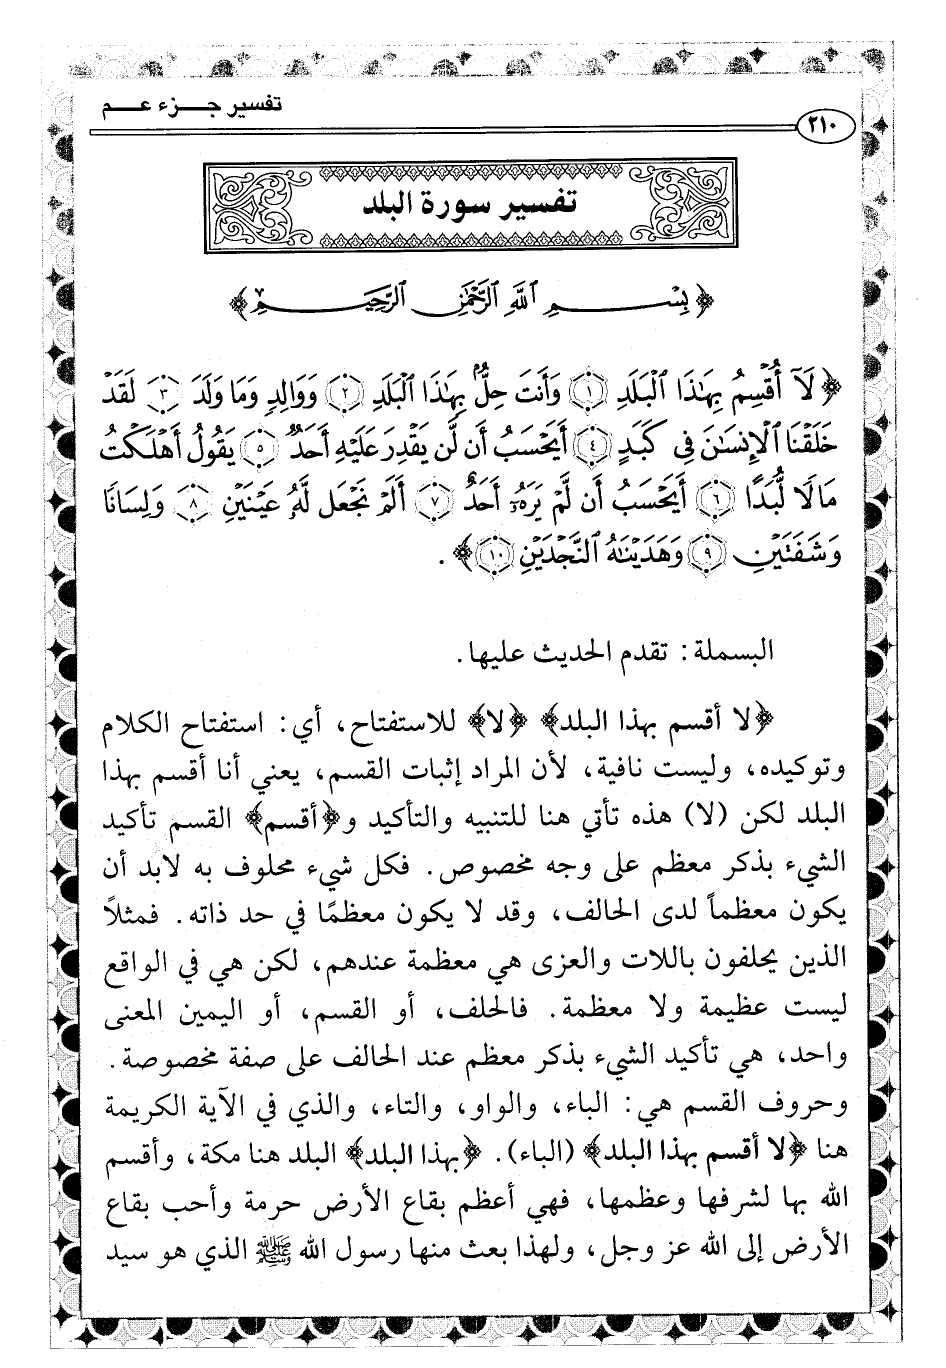 تفسير جـــزء عـــم
٢١٠
تفسير سورة البلد
﴿بِسْمِ ٱللَّهِ ٱلرَّحْمَٰنِ ٱلرَّحِيمِ﴾
﴿لَآ أُقْسِمُ بِهَٰذَا ٱلْبَلَدِ ١ وَأَنتَ حِلٌّۢ بِهَٰذَا ٱلْبَلَدِ ٢ وَوَالِدٍ وَمَا وَلَدَ ٣ لَقَدْ
خَلَقْنَا ٱلْإِنسَٰنَ فِى كَبَدٍ ٤ أَيَحْسَبُ أَن لَّن يَقْدِرَ عَلَيْهِ أَحَدٌ ٥ يَقُولُ أَهْلَكْتُ
مَالًا لُّبَدًا ٦ أَيَحْسَبُ أَن لَّمْ يَرَهُۥٓ أَحَدٌ ٧ أَلَمْ نَجْعَل لَّهُۥ عَيْنَيْنِ ٨ وَلِسَانًا
وَشَفَتَيْنِ ٩ وَهَدَيْنَٰهُ ٱلنَّجْدَيْنِ ١٠﴾.
البسملة: تقدم الحديث عليها.
﴿لا أقسم بهذا البلد﴾ ﴿لا﴾ للاستفتاح، أي: استفتاح الكلام
وتوكيده، وليست نافية، لأن المراد إثبات القسم، يعني أنا أقسم بهذا
البلد لكن (لا) هذه تأتي هنا للتنبيه والتأكيد و﴿أقسم﴾ القسم تأكيد
الشيء بذكر معظم على وجه مخصوص. فكل شيء محلوف به لابد أن
يكون معظماً لدى الحالف، وقد لا يكون معظمًا في حد ذاته. فمثلاً
الذين يحلفون باللات والعزى هي معظمة عندهم، لكن هي في الواقع
ليست عظيمة ولا معظمة. فالحلف، أو القسم، أو اليمين المعنى
واحد، هي تأكيد الشيء بذكر معظم عند الحالف على صفة مخصوصة.
وحروف القسم هي: الباء، والواو، والتاء، والذي في الآية الكريمة
هنا ﴿لا أقسم بهذا البلد﴾ (الباء). ﴿بهذا البلد﴾ البلد هنا مكة، وأقسم
الله بها لشرفها وعظمها، فهي أعظم بقاع الأرض حرمة وأحب بقاع
الأرض إلى الله عز وجل، ولهذا بعث منها رسول الله ﷺ الذي هو سيد